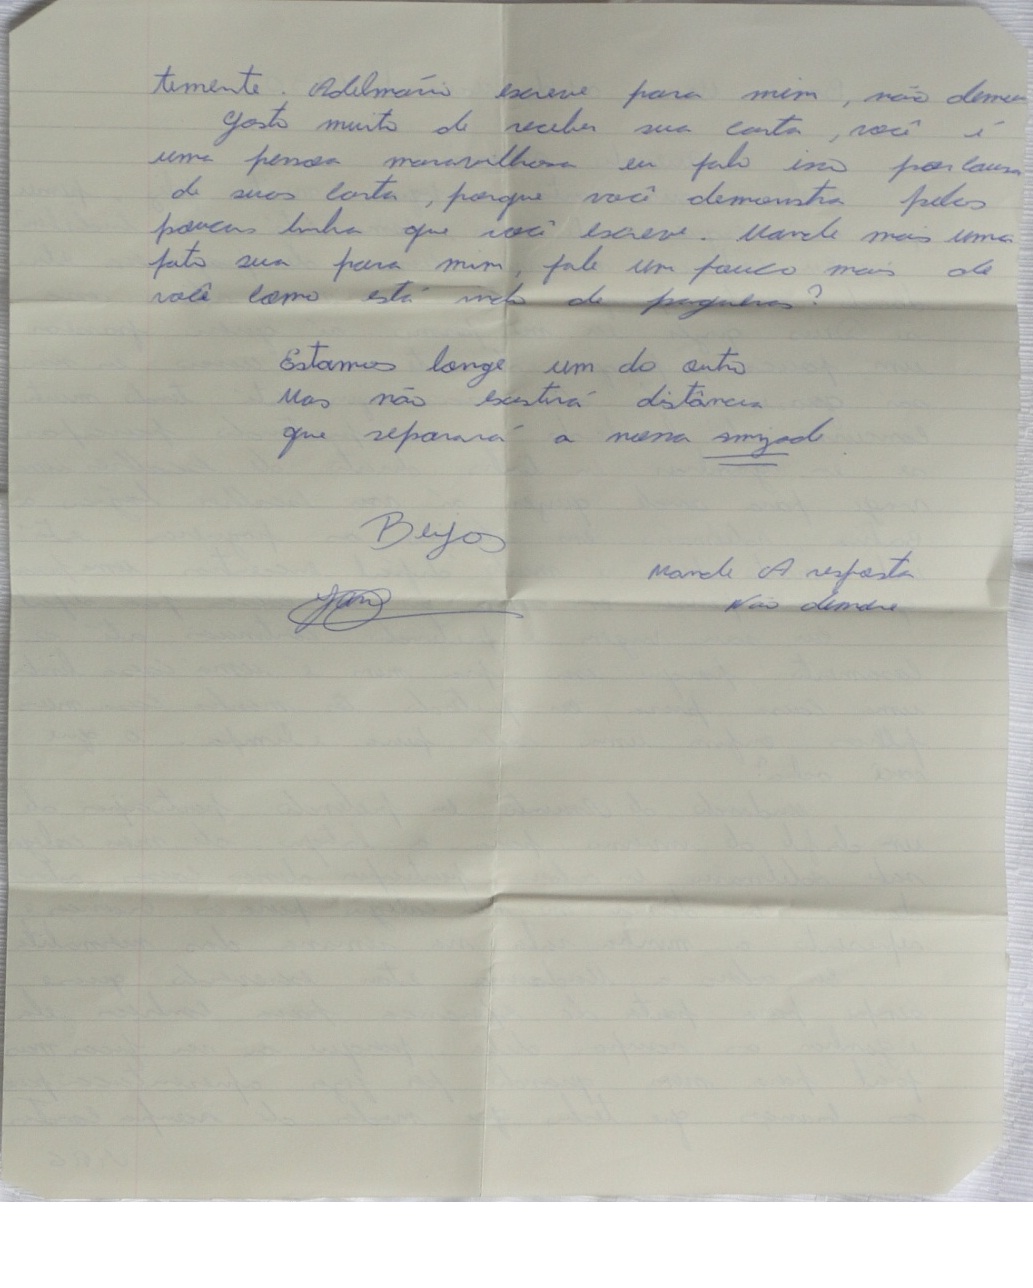 temente. Adelmário escreve para mim, não demore
Gosto muito de receber sua carta, você é
uma pessoa maravilhosa eu falo isso por causa
de suas carta, porque você demonstra pelas
poucas linha que você escreve. Mande mais uma
foto sua para mim, fale um pouco mais de
você como está indo de paqueras?
Estamos longe um do outro
Mas não existirá distância
que separará a nossa amizade
Beijos
Mande A resposta
Não demore